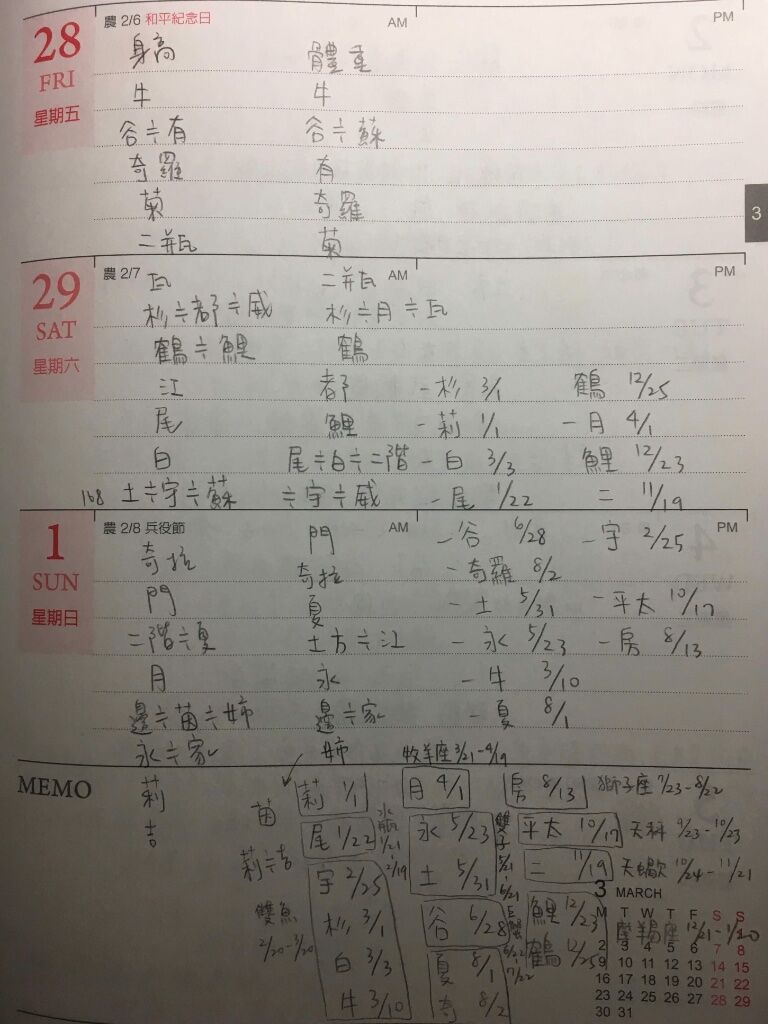 28 農 2/6 和平紀念日 AM PM
FRI
星期五
身高 體重
牛 牛
谷≒有 谷≒蘇
奇羅 有
菊 奇羅
二瓶 菊
3
29 農 2/7 AM PM
SAT
星期六
瓦 二瓶
杉≒都≒威 杉≒月≒瓦
鶴≒鯉 鶴
江 都 -杉 3/1 鶴 12/25
尾 鯉 -莉 1/1 -月 4/1
白 尾≒白≒二階 -白 3/3 鯉 12/23
168 土≒宇≒蘇 ≒宇≒威 -尾 1/22 二 11/19
1 農 2/8 兵役節 AM PM
SUN
星期日
奇拉 門 -谷 6/28 -宇 2/25
門 奇拉 -奇羅 8/2
夏 -土 5/31 -平太 10/17
二階≒夏 土方≒江 -永 5/23 -房 8/13
月 永 -牛 3/10
邊≒苗≒姉 邊≒家 -夏 8/1
永≒家 姉 牧羊座 3/21-4/19
MEMO
莉 苗 莉 1/1 月 4/1 房 8/13 獅子座 7/23-8/22
吉 尾 1/22 水瓶 1/21-2/19 永 5/23 雙子 5/21-6/21 平太 10/17 天秤 9/23-10/23
莉≒吉 土 5/31 二 11/19 天蠍 10/24-11/21
雙魚 2/20-3/20 宇 2/25 谷 6/28 巨蟹 6/22-7/22 鯉 12/23 摩羯座 12/21-1/20
杉 3/1 夏 8/1 鶴 12/25
白 3/3 奇 8/2
牛 3/10
3 MARCH
M T W T F S S
2 3 4 5 6 7 8
9 10 11 12 13 14 15
16 17 18 19 20 21 22
23 24 25 26 27 28 29
30 31